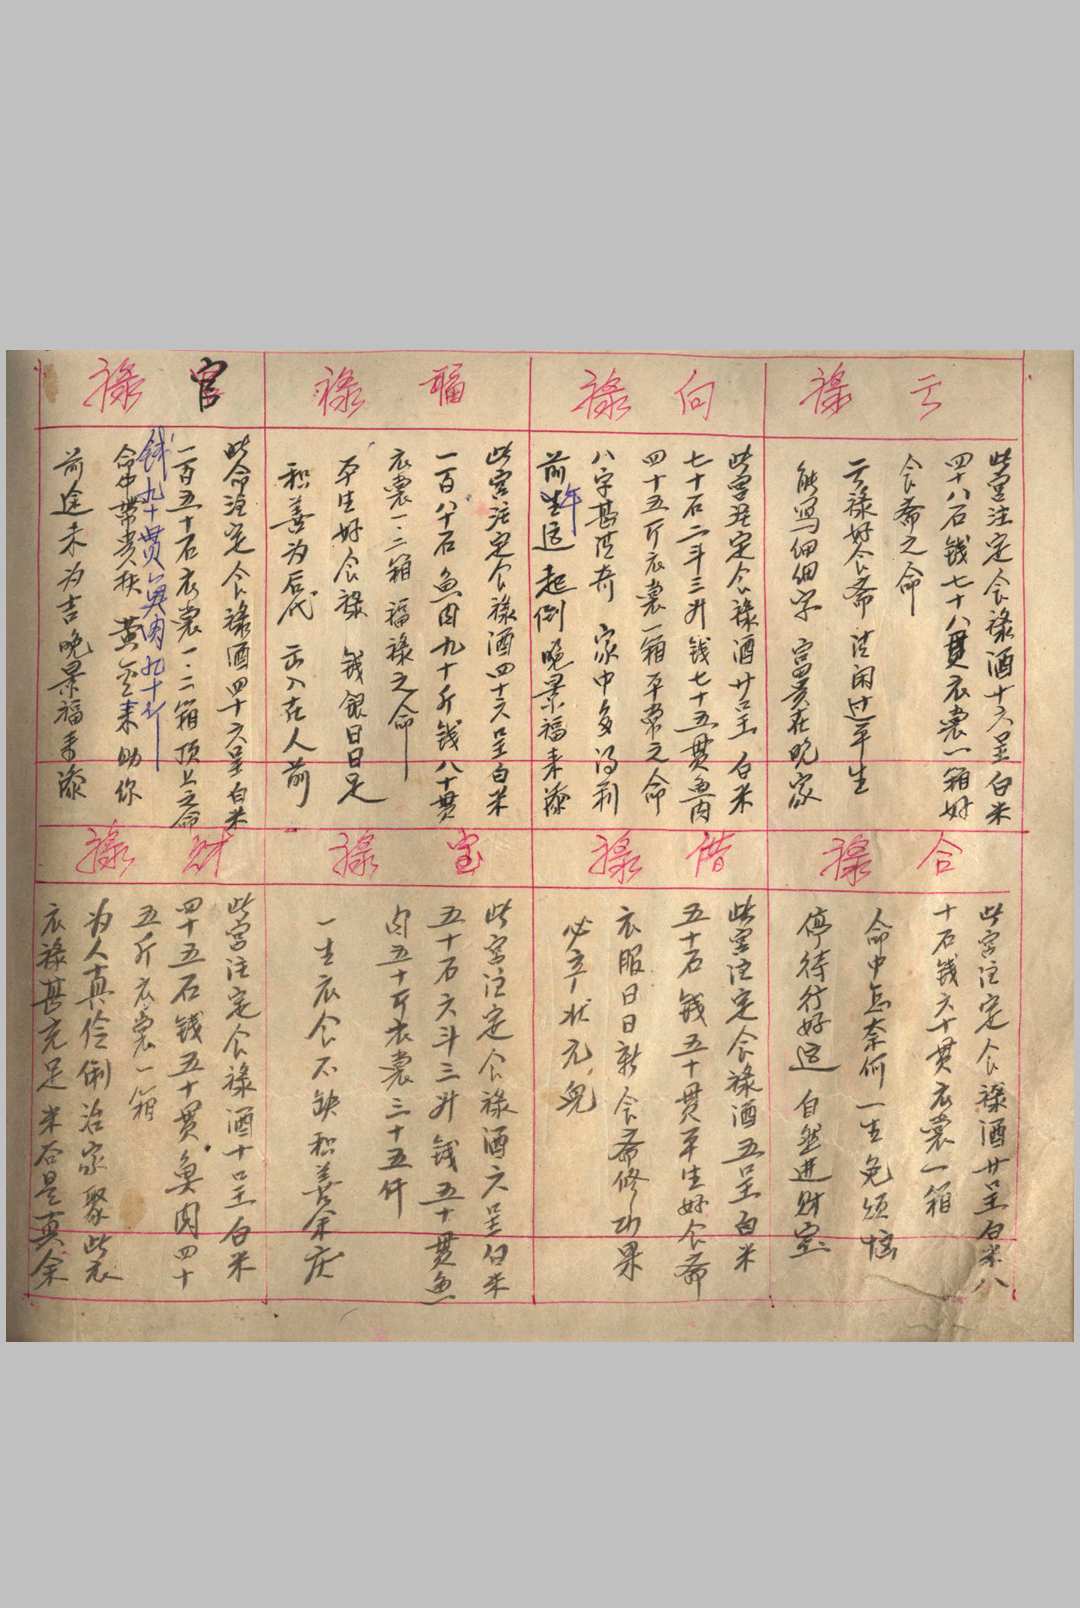 云禄
此宫注定食禄酒十六呈白米
四十八石钱七十八贯衣裳一箱好
食斋之命
云禄好食斋 清闲过平生
能写佃佃字 富贵在晚家
向禄
此宫注定食禄酒廿呈 白米
七十石二斗三升钱七十五贯鱼肉
四十五斤衣裳一箱平常之命
八字甚清奇 家中多得利
前年运起倒 晚景福来添
福禄
此宫注定食禄酒四十六呈白米
一百八十石鱼肉九十斤钱八十贯
衣裳一二箱 福禄之命
平生好食禄 钱银日日足
积善为后代 在人前
官禄
此命注定食禄酒四十六呈白米
一百五十石衣裳一二箱顶上之命
钱九十贯鱼肉九十斤
命中带贵人扶 黄金来助你
前途未为吉晚景福来添
合禄
此宫注定食禄酒廿呈白米八
十石钱六十贯衣裳一箱
命中怎奈何 一生免烦恼
停待行好运 自然进财宝
借禄
此宫注定食禄酒五呈白米
五十石钱五十贯平生好食斋
衣服日日新食斋修功果
必产状元儿
宝禄
此宫注定食禄酒六呈白米
五十石六斗三升钱五十贯鱼
肉五十斤衣裳三十五件
一生衣食不缺积善余庆
财禄
此宫注定食禄酒十呈白米
四十五石钱五十贯鱼肉四十
五斤衣裳一箱
为人真伶俐治家聚此衣
衣禄甚充足米谷是真余